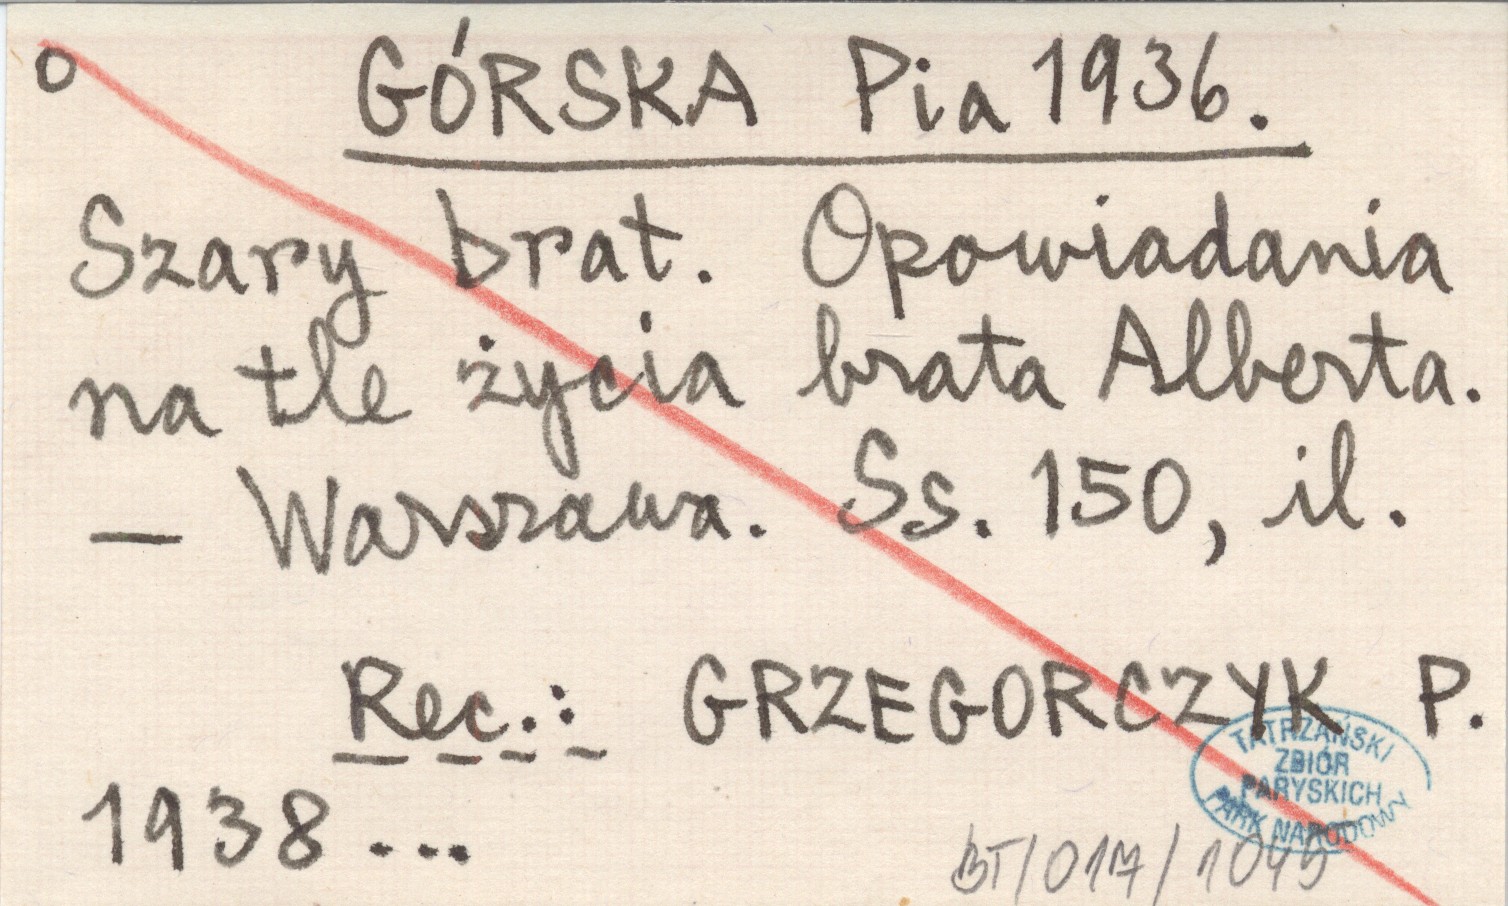 o GÓRSKA Pia 1936.
Szary brat. Opowiadania
na tle życia brata Alberta.
— Warszawa. Ss. 150, il.
Rec.: GRZEGORCZYK P.
1938...
TATRZAŃSKI
ZBIÓR
PARYSKICH
PARK NARODOWY
BT/017/1045